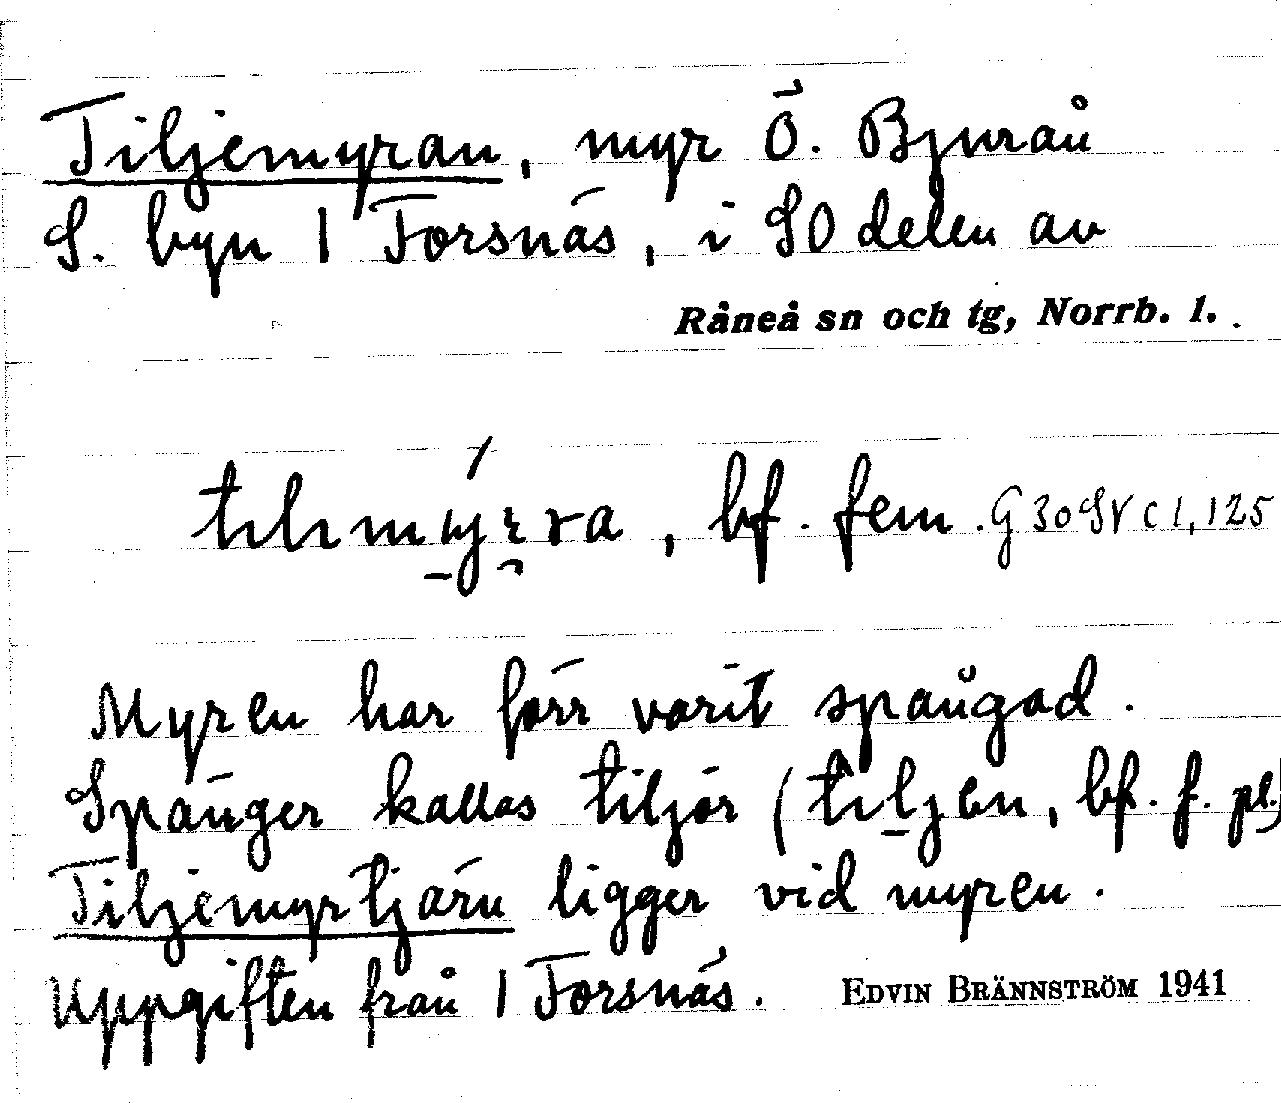 Tiljemyran, myr Ö. Bjurån
S. byn 1 Forsnäs, i SO delen av
Råneå sn och tg, Norrb. l.
bf. fem. G 30 SV c 1, 125
Myren har förr varit spångad.
Spänger kallas tiljor (tiljen, bf. f. pl.)
Tiljemyrtjärn ligger vid myren.
Uppgiften från 1 Forsnäs. EDVIN BRÄNNSTRÖM 1941